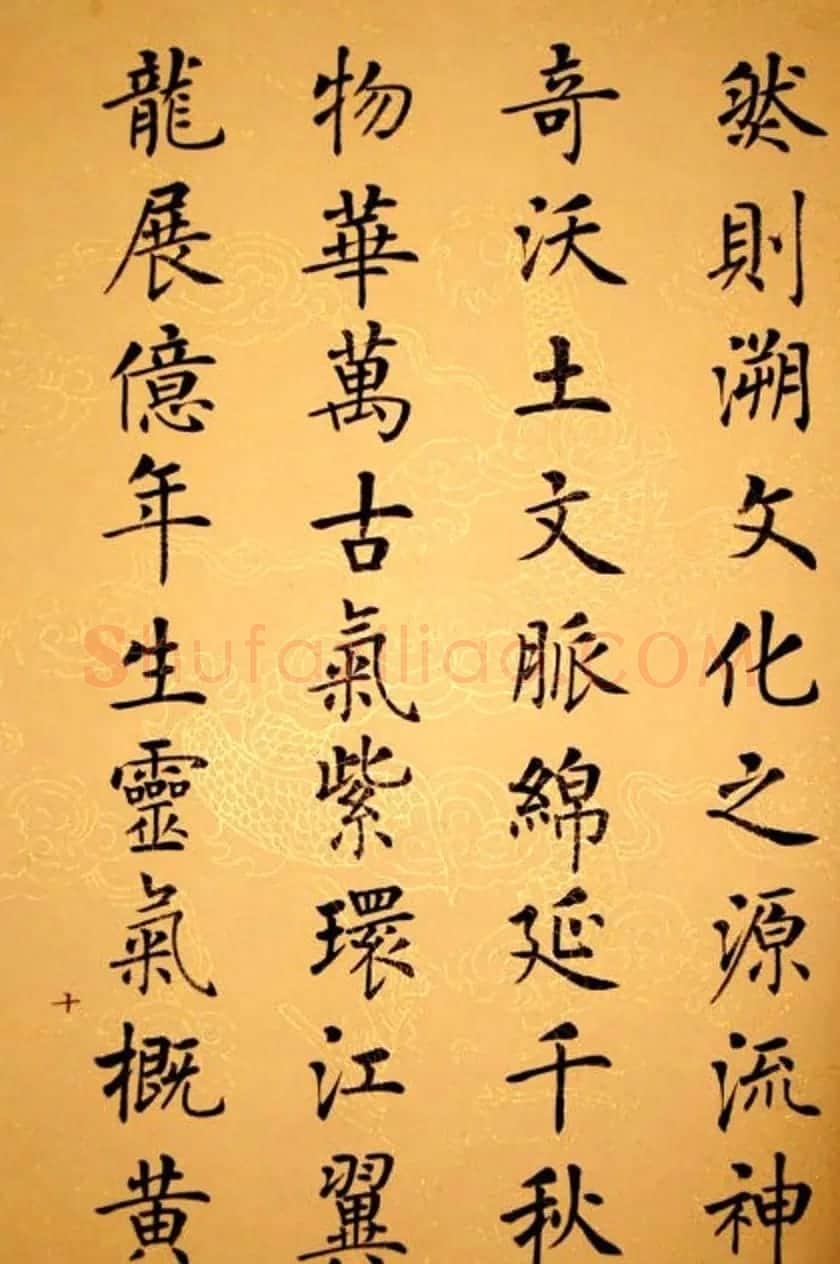 然則溯文化之源流神
奇沃土文脈綿延千秋
物華萬古氣紫環江翼
龍展億年生靈氣概黄
十